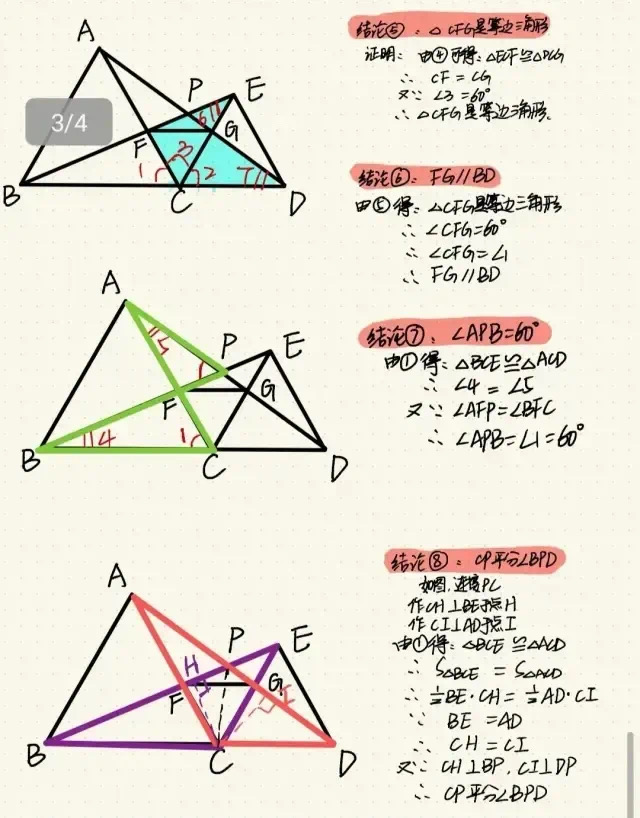 结论⑤：△CFG是等边三角形
证明：由④可得：△ECF≌△DCG
∴ CF=CG
又∵ ∠3=60°
∴ △CFG是等边三角形.
A
P
E
3/4
F
6
G
3
1
2
7
B
C
D
结论⑥：FG//BD
由⑤得：△CFG是等边三角形
∴ ∠CFG=60°
∴ ∠CFG=∠1
∴ FG//BD
A
5
P
E
F
G
4
1
B
C
D
结论⑦：∠APB=60°
由①得：△BCE≌△ACD
∴ ∠4=∠5
又∵ ∠AFP=∠BFC
∴ ∠APB=∠1=60°
A
P
E
H
F
G
I
B
C
D
结论⑧：CP平分∠BPD
如图，连接PC
作CH⊥BE于点H
作CI⊥AD于点I
由①得：△BCE≌△ACD
∴ S△BCE=S△ACD
∴ ½BE·CH=½AD·CI
∵ BE=AD
∴ CH=CI
又∵ CH⊥BP，CI⊥DP
∴ CP平分∠BPD